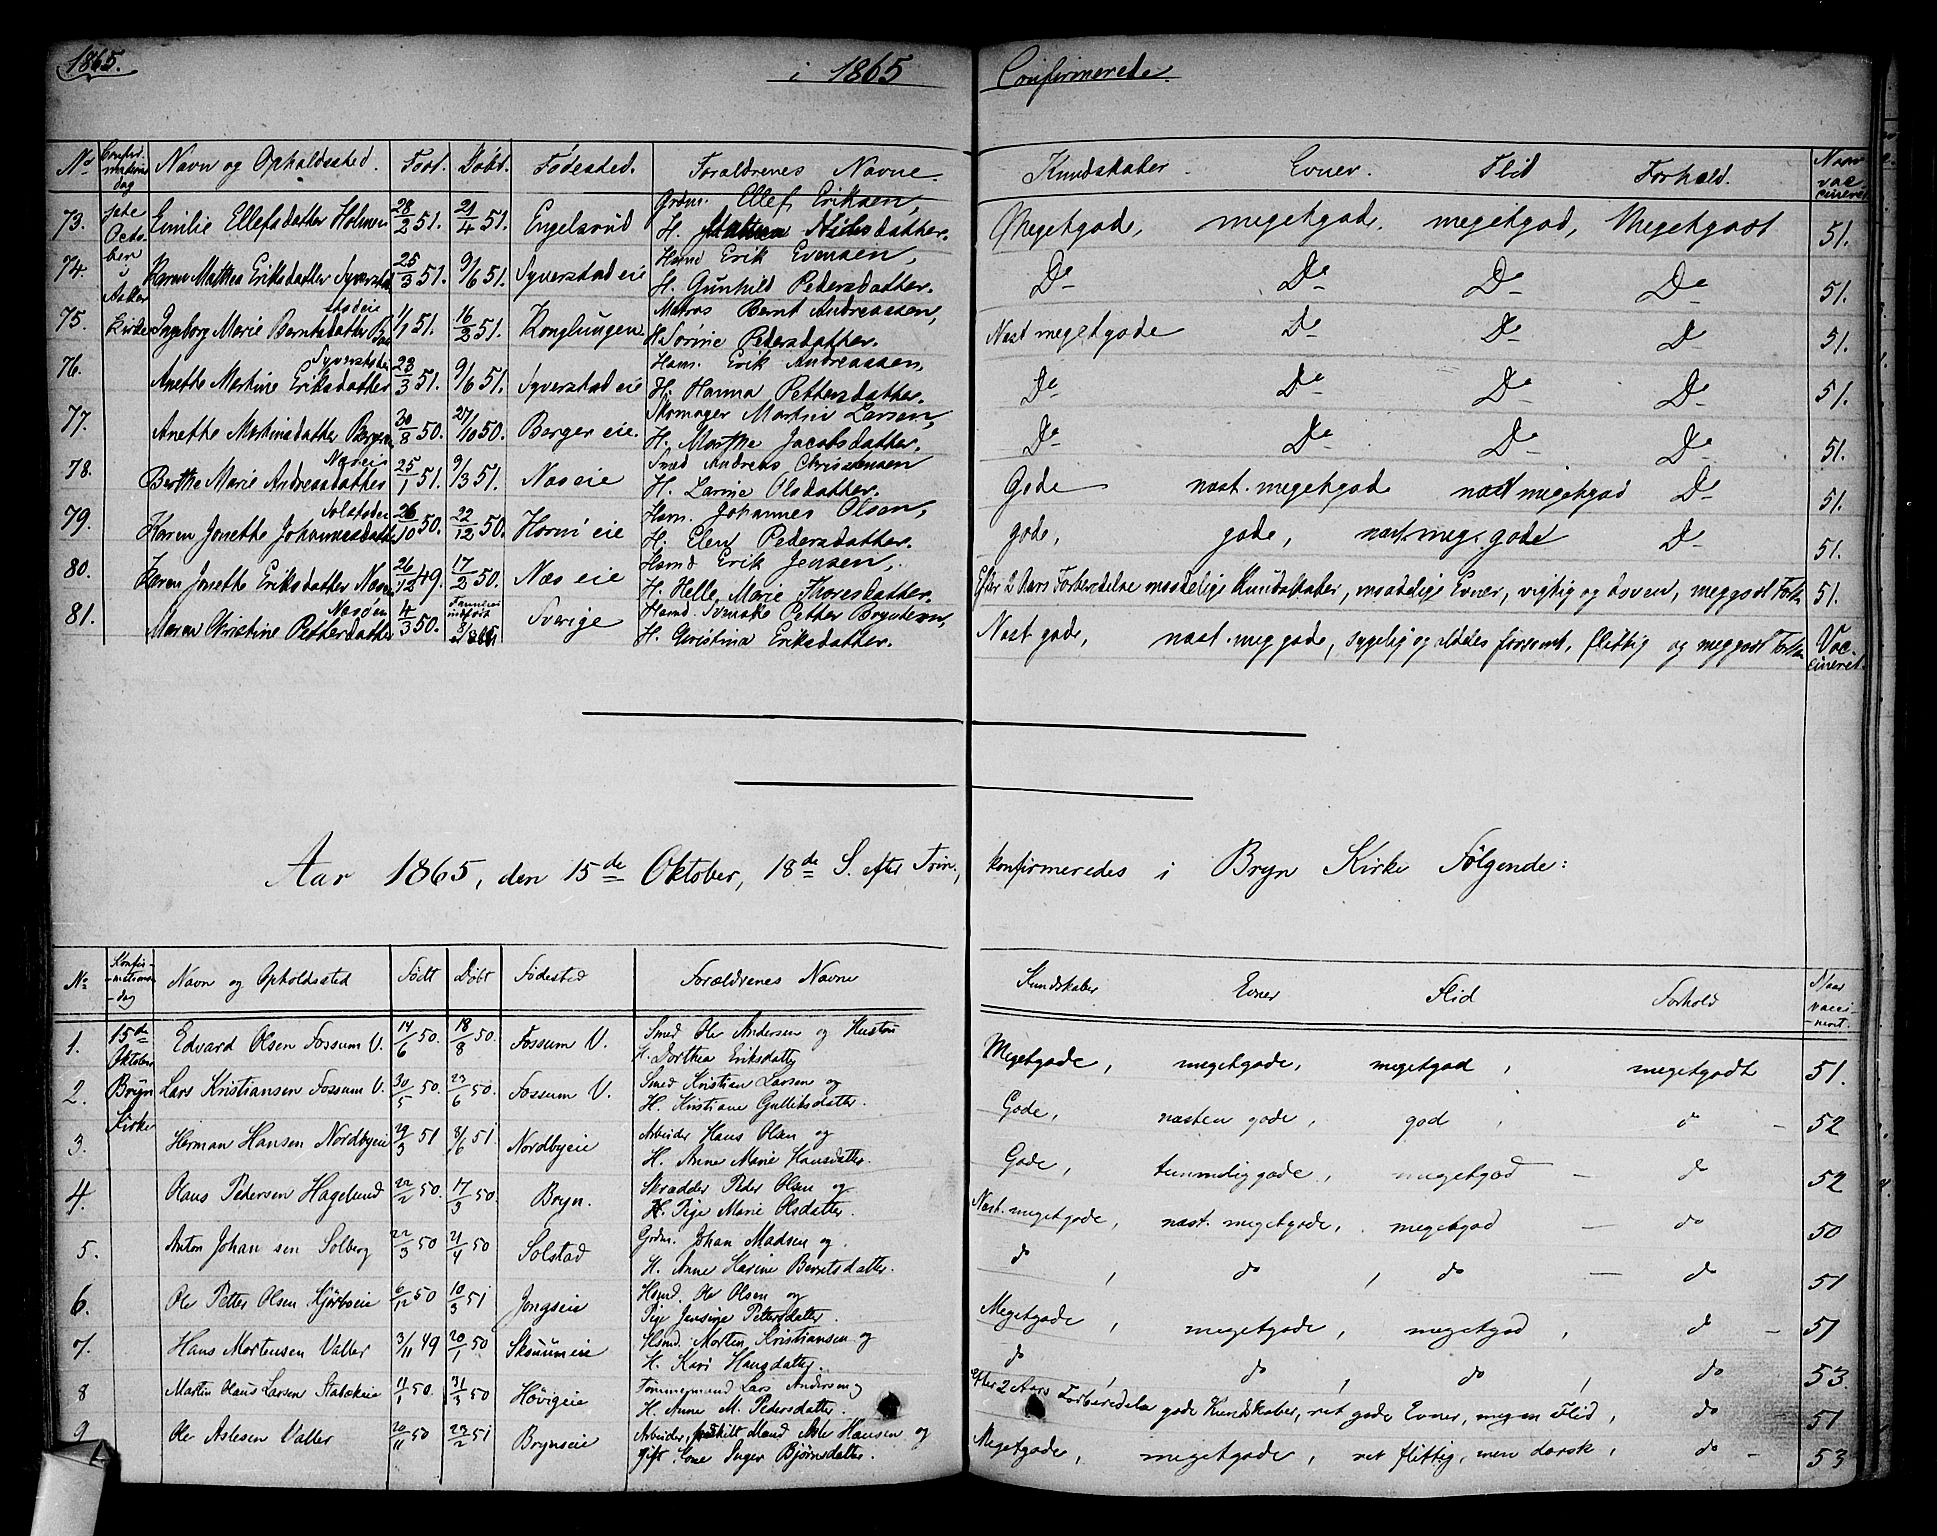 1865.
i 1865 Confirmerede.
No Confirmations dag Navn og Opholdssted. Født. Døbt. Fødested. Forældrenes Navne. Kundskaber. Evner. Flid Forhold. Naar vaccineret
73. 1ste Octoberen i Asker Kirke Emilie Ellefsdatter Holmen 28/2 51. 21/4 51. Engelsrud Grdm. Ellef Eriksen, H. Nilsdatter. Megetgode, megetgode. megetgod, Megetgodt 51.
74. Karen Mathea Eriksdatter Syverstadeie 25/3 51. 9/6 51. Syverstad eie Husmd Erik Evensen, H. Gunhild Pedersdatter. Do Do Do Do 51.
75. Ingeborg Marie Berntsdatter 1/1 51. 16/2 51. Konglungen Matros Bernt Andreassen, H. Sørine Pedersdatter. Næst megetgode Do Do Do 51.
76. Anette Martine Eriksdatter Syverstadeie 23/3 51. 9/6 51. Syverstad eie Husm. Erik Andreassen, H. Hanna Pettersdatter. Do Do Do Do 51.
77. Anette Martinsdatter Berger 30/8 50. 27/10 50. Berger eie. Skomager Martin Larsen, H. Marthe Jacobsdatter. Do Do Do Do 51.
78. Berthe Marie Andreasdatter Næseie 25/1 51. 9/3 51. Næs eie Smed Andreas Christensen H. Larine Olsdatter. Gode næst. megetgode næst megetgod Do 51.
79. Karen Jonette Johannesdatter Solstadeie 26/10 50. 22/12 50. Horni eie Husm. Johannes Olsen, H. Elen Pedersdatter. gode, gode, næst meg. gode Do 51.
80. Karen Josette Eriksdatter Næs 26/12 49. 17/2 50. Næs eie Husmd Erik Jensen, H. Helle Marie Thoresdatter. Efter 2 Aars Forberedelse maadelige Kundskaber, maadelige Evner, vigtig og doven, meggodt Forh. 51.
81. Maren Christine Pettersdatter Næseie 4/3 50. Sverige Husmd Svenske Petter Bryntesen, H. Christina Eriksdatter. Næst gode, næst. meg gode, sygelig og forsømt, flittig og meg godt Forh Vaccineret.
Aar 1865, den 15de Oktober, 18de S. efter Trin., konfirmeredes i Bryn Kirke Følgende:
No Konfirmations-dag Navn og Opholdssted Født Døbt Fødested Forældrenes Navne Kundskaber Evner Flid Forhold Naar vaccineret.
1. 15de Oktober Bryn Kirke Edvard Olsen Fossum V. 14/6 50. 18/8 50. Fossum V. Smed Ole Andersen og Hustru H. Dorthea Eriksdatter Megetgode, megetgode, megetgod, megetgodt 51.
2. Lars Kristiansen Fossum V. 30/5 50. 23/6 50. Fossum V. Smed Kristian Larsen og H. Kristiane Gulliksdatter. Gode, næsten gode, god, do 52
3. Herman Hansen Nordbyeie 29/3 51 8/6 51. Nordbyeie Arbeider Hans Olsen og H. Anne Marie Hansdatter. Gode, temmelig gode, megetgod do 52
4. Klaus Pedersen Hagelund 22/2 50. 17/3 50. Bryn. Skrædder Peder Olsen og H. Pige Marie Olsdatter. Næst. megetgode, næst. megetgode, megetgod do 50
5. Anton Johansen Solberg 22/3 50 21/4 50 Solstad Grdm. Johan Madsen og H. Anne Karine Berntsdatter. do, do, do do 51
6. Ole Petter Olsen Kjørboeie 6/12 50 10/3 51 Jongseie Husmd. Ole Olsen og Pige Jensine Pettersdatter. Megetgode, megetgode, megetgod, do 51
7. Hans Mortensen Valler 3/11 49 20/1 50 Skouumeie Husmd. Morten Kristiansen og H. Kari Hansdatter. do, do, do, do 53.
8 Martin Klaus Larsen Stabekeie 11/1 50. 31/3 50 Høvigeie Tømmermand Lars Andersen og H. Anne M. Pedersdatter. Efter 2 Aars Forberedelse gode Kundskaber, ret gode Evner, megen Flid, do 51
9 Ole Aslesen Valler 20/11 50 23/2 51 Brynseie Arbeider, fraskilt Mand Asle Hansen og gift Kone Inger Bjørnsdatter. Megetgode, megetgode, ret flittig, men dorsk, do 53